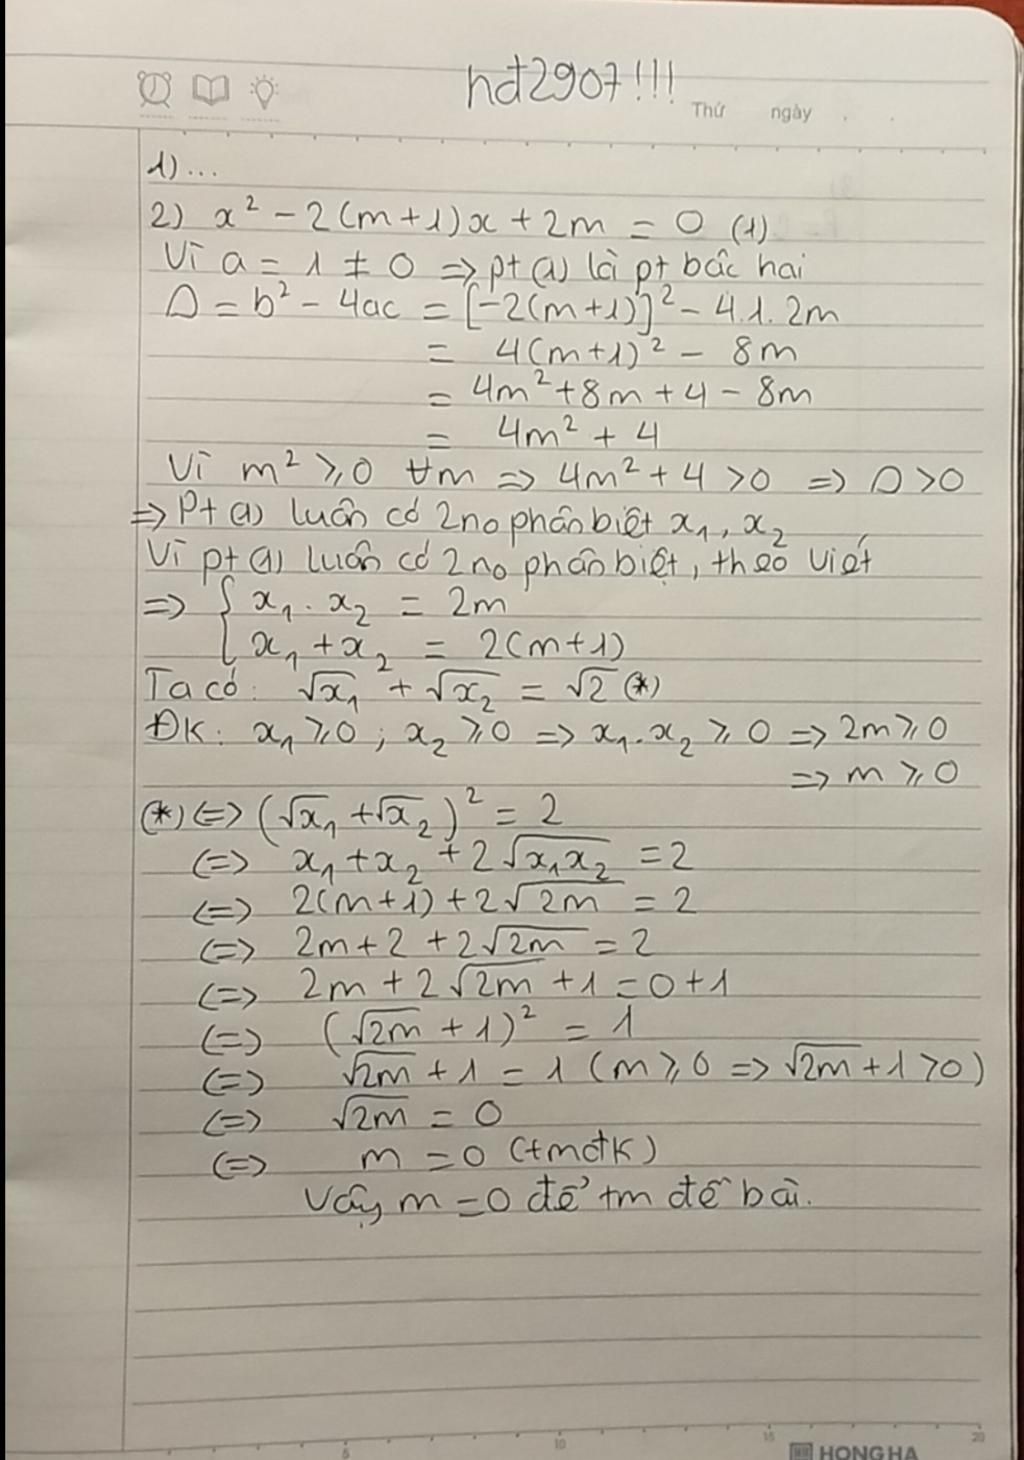 hđ2907!!!
Thứ ngày
1)...
2) x² - 2(m+1)x + 2m = 0 (1)
Vì a = 1 ≠ 0 => pt (1) là pt bậc hai
Δ = b² - 4ac = [-2(m+1)]² - 4.1.2m
= 4(m+1)² - 8m
= 4m² + 8m + 4 - 8m
= 4m² + 4
Vì m² ≥ 0 ∀m => 4m² + 4 > 0 => Δ > 0
=> Pt (1) luôn có 2 no phân biệt x₁, x₂
Vì pt (1) luôn có 2 no phân biệt, theo Viét
=> { x₁ . x₂ = 2m
x₁ + x₂ = 2(m+1)
Ta có: √x₁ + √x₂ = √2 (*)
ĐK: x₁ ≥ 0 ; x₂ ≥ 0 => x₁.x₂ ≥ 0 => 2m ≥ 0
=> m ≥ 0
(*) <=> (√x₁ + √x₂)² = 2
<=> x₁ + x₂ + 2√x₁x₂ = 2
<=> 2(m+1) + 2√2m = 2
<=> 2m + 2 + 2√2m = 2
<=> 2m + 2√2m + 1 = 0 + 1
<=> (√2m + 1)² = 1
<=> √2m + 1 = 1 (m ≥ 0 => √2m + 1 > 0)
<=> √2m = 0
<=> m = 0 (tmđk)
Vậy m = 0 để tm đề bài.
5 10 15 20
HONG HA